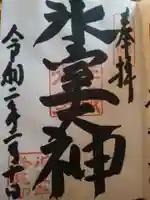 奉拝
氷室神
令和二年二月十日